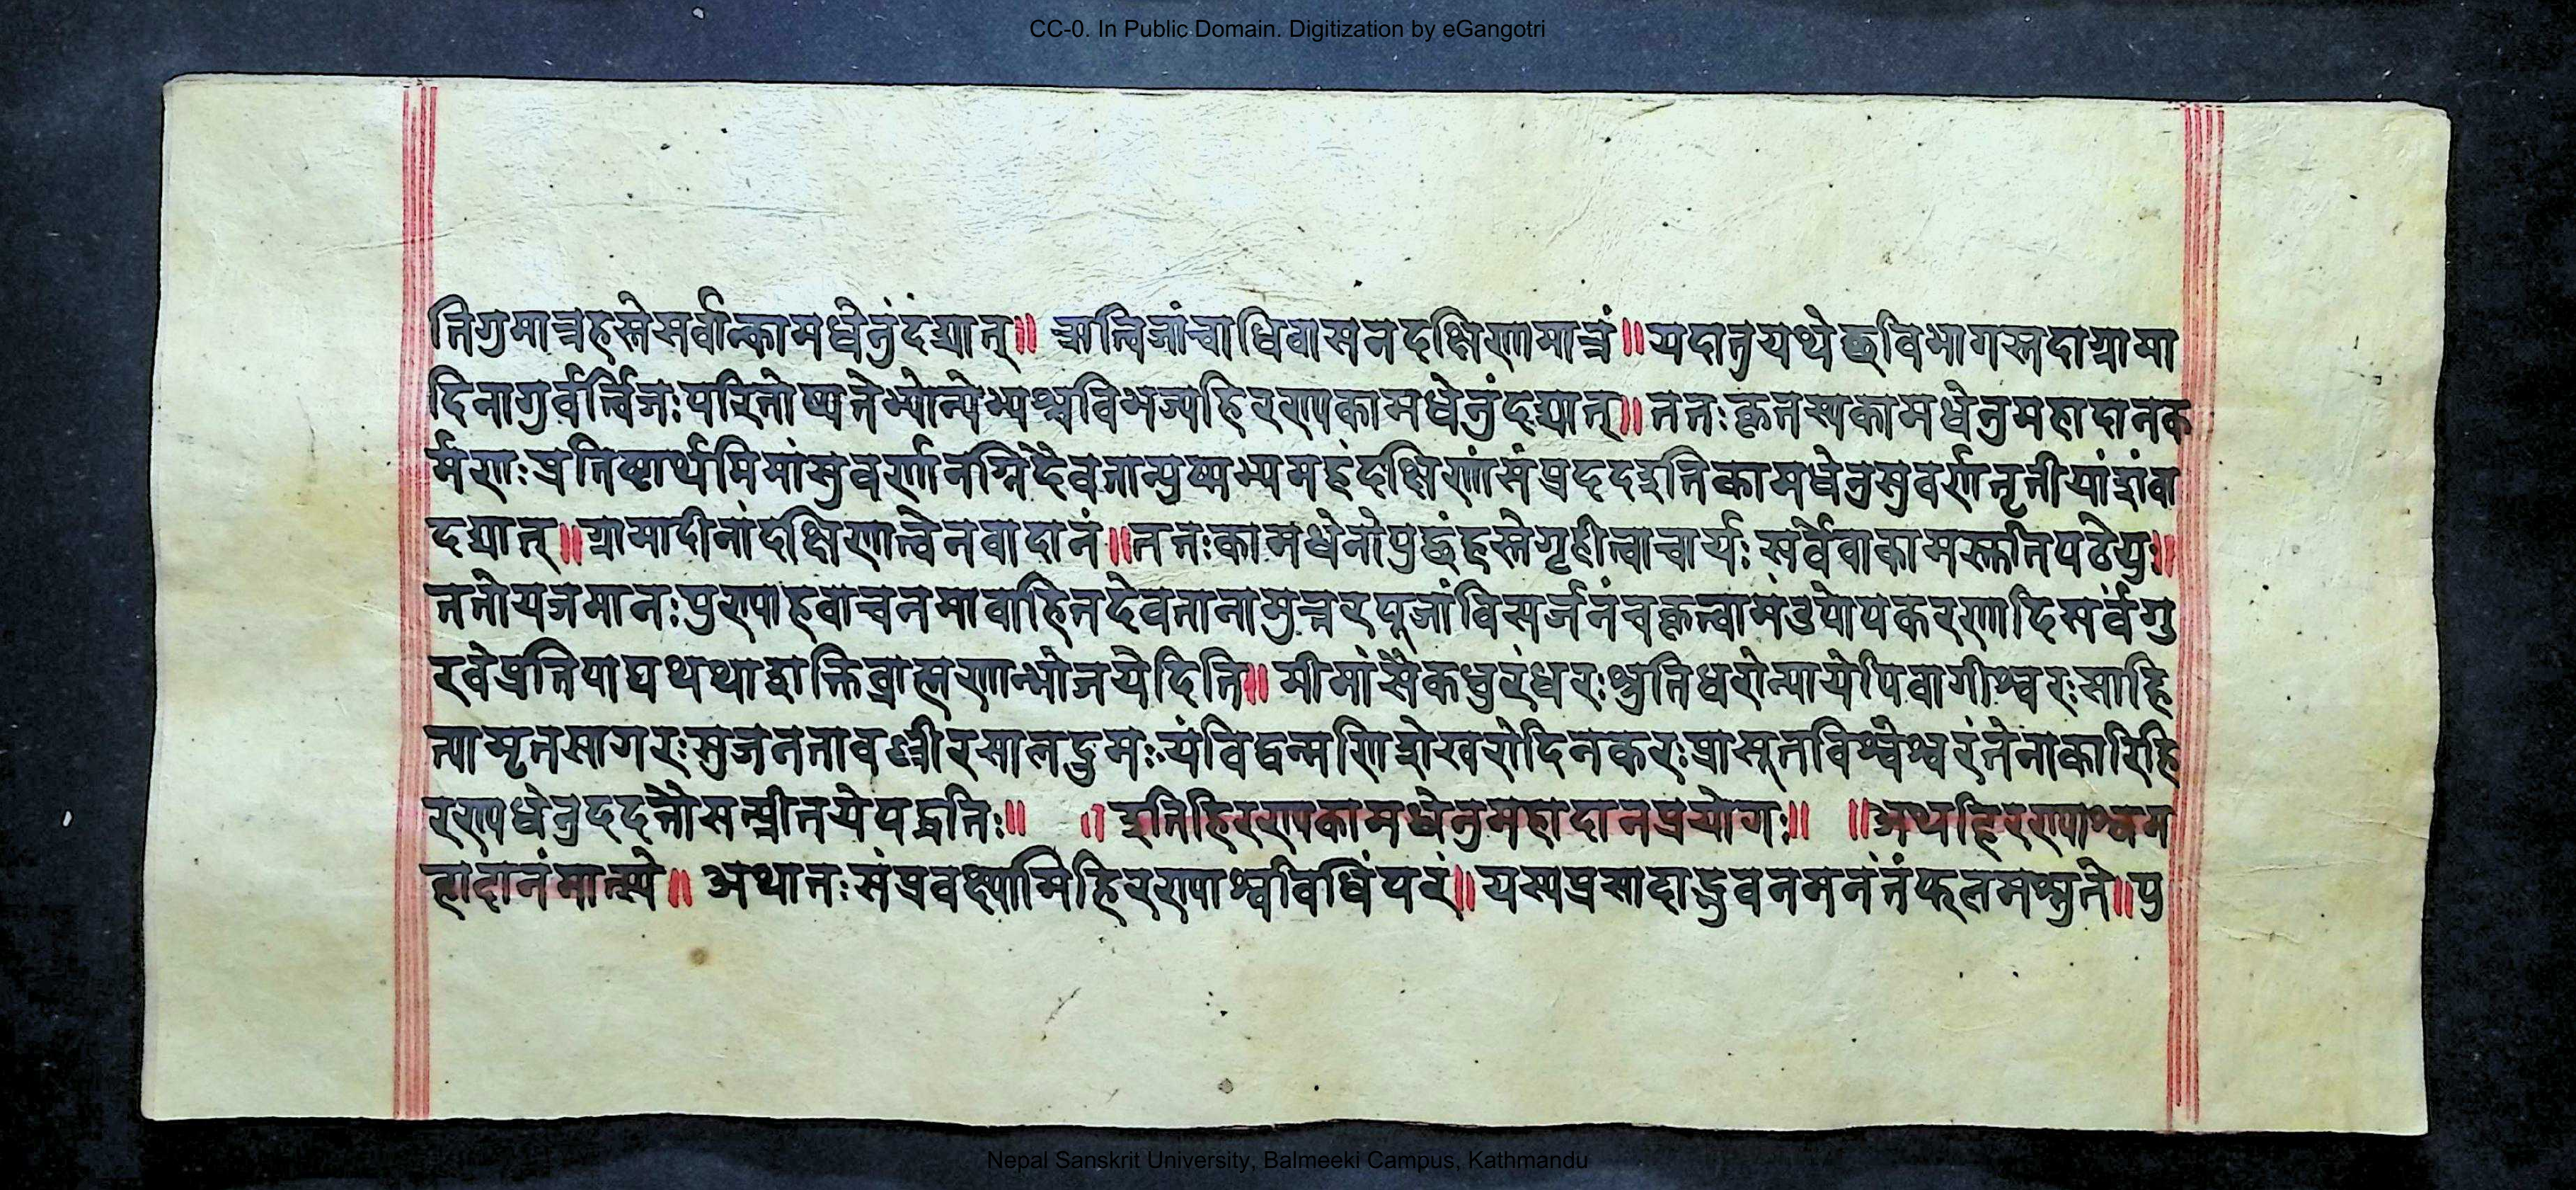 CC-0. In Public Domain. Digitization by eGangotri
तिगुमात्रहस्तेसर्वान्कामधेनुंदद्यात्॥ ऋत्विजांचाधिवासनदक्षिणामात्रं॥यदातुयथेछविभागस्तदाग्रामा
दिनागुर्वर्त्विजःपरितोष्यतेभ्योन्येभ्यश्चविभज्यहिरण्यकामधेनुंदद्यात्॥ततःकृतस्यकामधेनुमहादानक
र्मणःप्रतिष्ठार्थमिमांसुवर्णानग्निदैवतान्युष्मभ्यमहंदक्षिणांसंप्रददइतिकामधेनुसुवर्णतृतीयांशंवा
दद्यात्॥ग्रामादीनांदक्षिणात्वेनवादानं॥ततःकामधेनोपुछंहस्तेगृहीत्वाचार्यःसर्वेवाकामस्क्तानिपठेयुः॥
ततोयजमानःपुण्याहवाचनमावाहितदेवतानामुत्तरपूजांविसर्जनंचकृत्वामंडपोपकरणादिसर्वंगु
रवेप्रतिपाद्यथथाशक्तिब्राह्मणान्भोजयेदिति॥ मीमांसैकधुरंधरःश्रुतिधरोन्यायेपिवागीश्वरःसाहि
त्यामृतसागरःसुजनतावल्लीरसालद्रुमः यंविद्वन्मणिशेखरोदिनकरःप्रासूतविश्वेश्वरंतेनाकारिहि
रण्यधेनुददनेसत्प्रीतयेपद्धतिः॥ ॥इतिहिरण्यकामधेनुमहादानप्रयोगः॥ ॥अथहिरण्याश्वम
हादानंमात्स्ये॥ अथातःसंप्रवक्ष्यामिहिरण्याश्वविधिंपरं॥यस्यप्रसादाद्भुवनमनंतंफलमश्नुते॥पु
Nepal Sanskrit University, Balmeeki Campus, Kathmandu